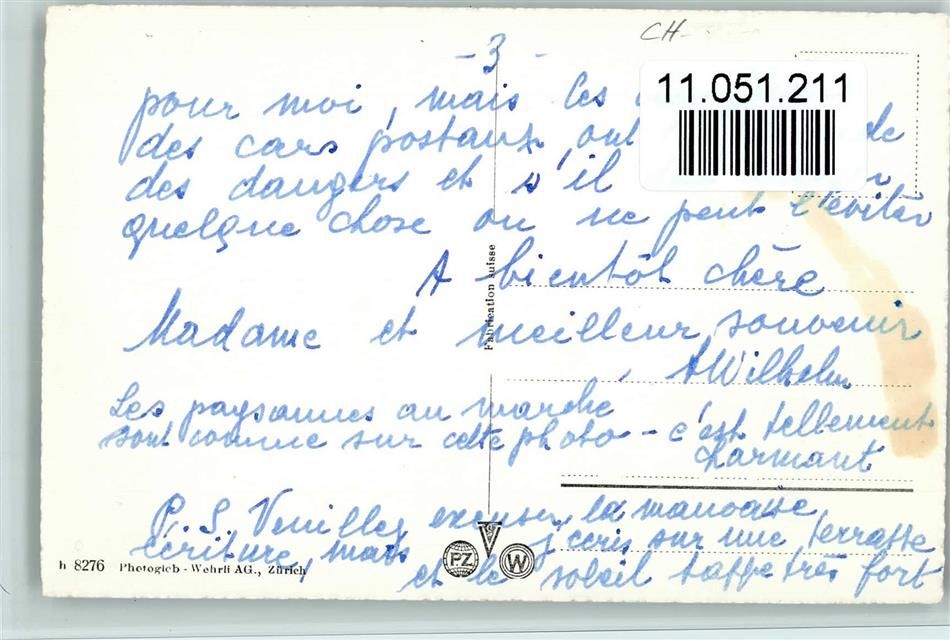 CH
- 3 -
11.051.211
pour moi, mais les
des cars postaux, ont de
des dangers et s'il
quelque chose on ne peut l'éviter
A bientôt chère
Madame et meilleur souvenir
AWilhelm
Les paysannes au marché
sont comme sur cette photo - c'est tellement
charmant
P.S. Veuillez excuser la mauvaise
écriture, mais j'écris sur une terrasse
et le soleil tappe très fort
Fabrication suisse
h 8276 Photoglob - Wehrli AG., Zürich
PZ
W